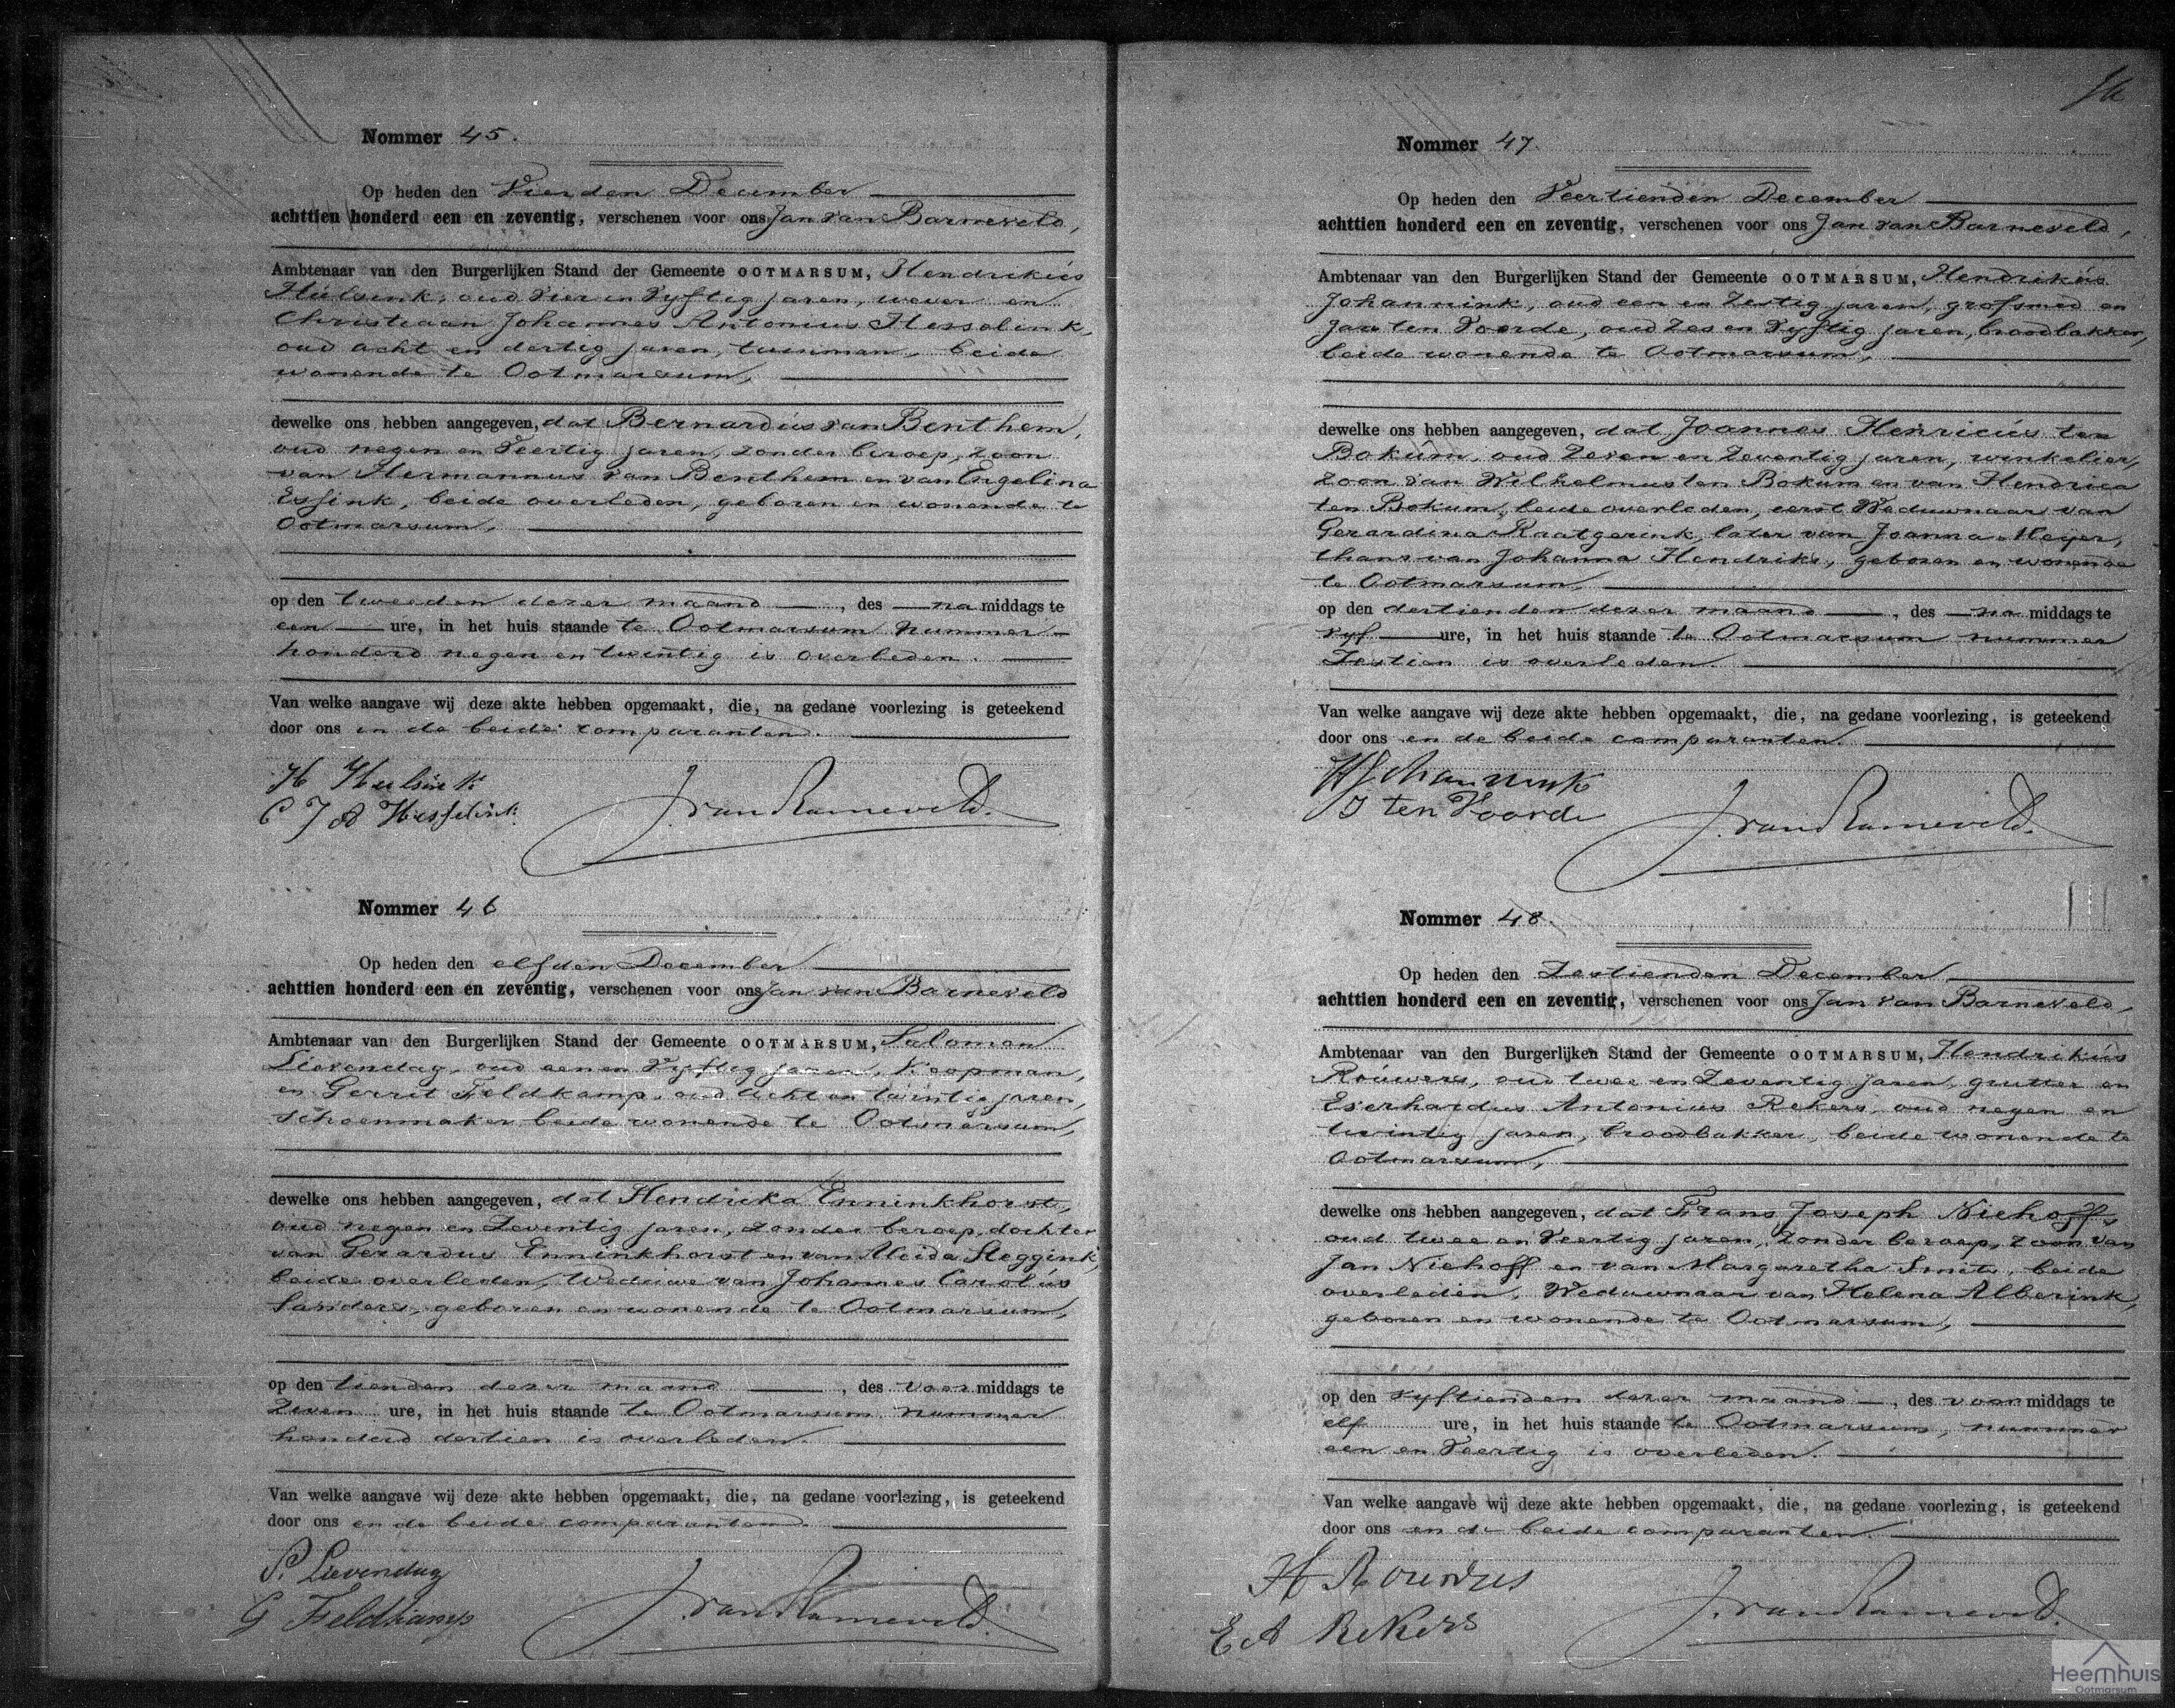 Nommer 45.
Op heden den Vierden December
achttien honderd een en zeventig, verschenen voor ons Jan van Barneveld,
Ambtenaar van den Burgerlijken Stand der Gemeente OOTMARSUM, Hendrikus
Hulsink, oud vier en vyftig jaren, wever en
Christiaan Johannes Antonius Hesselink,
oud acht en dertig jaren, tuinman, beide
wonende te Ootmarsum,
dewelke ons hebben aangegeven, dat Bernardus van Benthem,
oud negen en Veertig jaren, zonder beroep, zoon
van Hermannus van Benthem en van Engelina
Essink, beide overleden, geboren en wonende te
Ootmarsum,
op den tweeden dezer maand, des na middags te
een ure, in het huis staande te Ootmarsum nummer
honderd negen en twintig is overleden.
Van welke aangave wij deze akte hebben opgemaakt, die, na gedane voorlezing is geteekend
door ons en de beide comparanten.
H Hulsink
C J A Hesselink
J. van Barneveld.
Nommer 46
Op heden den elfden December
achttien honderd een en zeventig, verschenen voor ons Jan van Barneveld
Ambtenaar van den Burgerlijken Stand der Gemeente OOTMARSUM, Salomon
Lievendag, oud een en Vyftig jaren, Koopman,
en Gerrit Feldkamp, oud acht en twintig jaren,
schoenmaker beide wonende te Ootmarsum,
dewelke ons hebben aangegeven, dat Hendrika Enninkhorst,
oud negen en Zeventig jaren, zonder beroep, dochter
van Gerardus Enninkhorst en van Aleida Steggink,
beide overleden, Weduwe van Johannes Carolus
Sanders, geboren en wonende te Ootmarsum,
op den tienden dezer maand, des voor middags te
Zeven ure, in het huis staande te Ootmarsum nummer
honderd dertien is overleden.
Van welke aangave wij deze akte hebben opgemaakt, die, na gedane voorlezing, is geteekend
door ons en de beide comparanten.
S. Lievendag
G Feldkamp
J. van Barneveld.
Nommer 47.
Op heden den Veertienden December
achttien honderd een en zeventig, verschenen voor ons Jan van Barneveld,
Ambtenaar van den Burgerlijken Stand der Gemeente OOTMARSUM, Hendrikus
Johannink, oud een en Zestig jaren, grofsmid en
Jan ten Voorde, oud Zes en Vyftig jaren, broodbakker,
beide wonende te Ootmarsum,
dewelke ons hebben aangegeven, dat Joannes Henricus ten
Bokum, oud Zeven en Zeventig jaren, winkelier,
zoon van Wilhelmus ten Bokum en van Hendrica
ten Bokum, beide overleden, eerst Weduwnaar van
Gerardina Raatgerink, later van Joanna Meyer,
thans van Johanna Hendriks, geboren en wonende
te Ootmarsum,
op den dertienden dezer maand, des na middags te
vyf ure, in het huis staande te Ootmarsum nummer
Zestien is overleden.
Van welke aangave wij deze akte hebben opgemaakt, die, na gedane voorlezing, is geteekend
door ons en de beide comparanten.
H Johannink
J ten Voorde
J. van Barneveld.
Nommer 48.
Op heden den Zestienden December
achttien honderd een en zeventig, verschenen voor ons Jan van Barneveld,
Ambtenaar van den Burgerlijken Stand der Gemeente OOTMARSUM, Hendrikus
Rouwers, oud twee en Zeventig jaren, grutter en
Everhardus Antonius Rekers, oud negen en
twintig jaren, broodbakker, beide wonende te
Ootmarsum,
dewelke ons hebben aangegeven, dat Frans Joseph Niehoff,
oud twee en Veertig jaren, zonder beroep, zoon van
Jan Niehoff en van Margaretha Smits, beide
overleden, Weduwnaar van Helena Alberink,
geboren en wonende te Ootmarsum,
op den vyftienden dezer maand, des voor middags te
elf ure, in het huis staande te Ootmarsum, nummer
een en Veertig is overleden.
Van welke aangave wij deze akte hebben opgemaakt, die, na gedane voorlezing, is geteekend
door ons en de beide comparanten.
H Rouwers
E A Rekers
J. van Barneveld.
Heemhuis
Ootmarsum